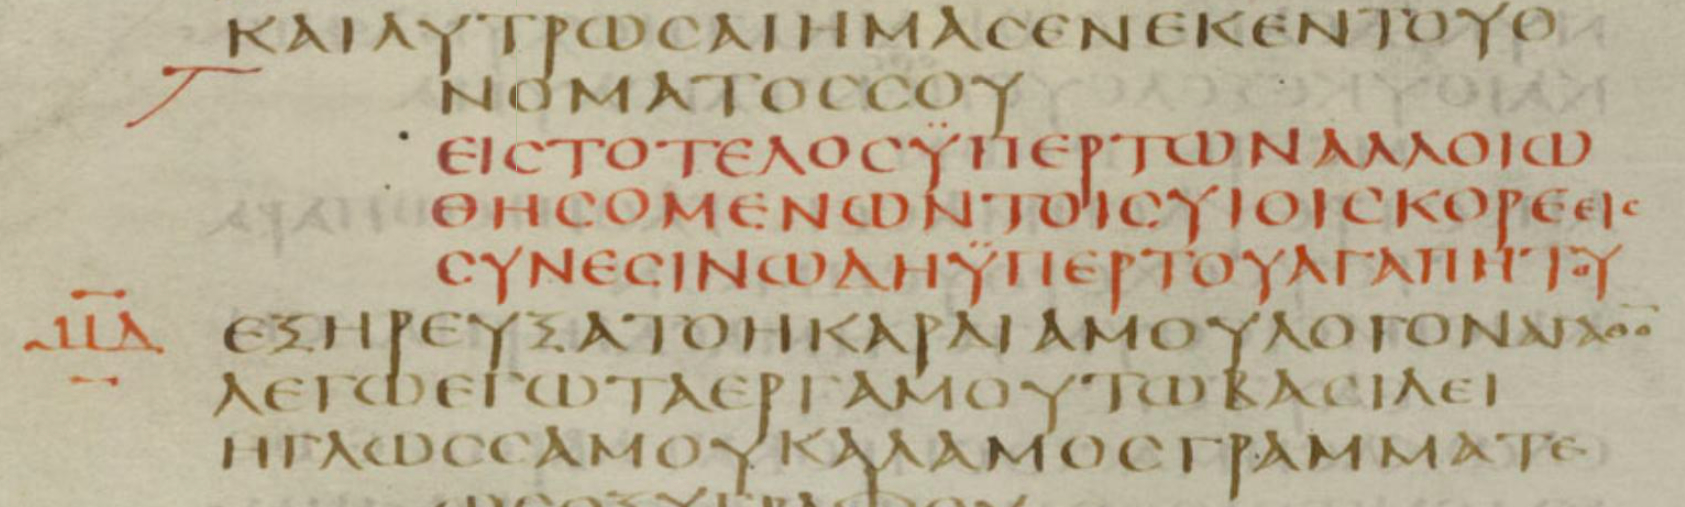 ΚΑΙΛΥΤΡΩCΑΙΗΜΑCΕΝΕΚΕΝΤΟΥΟ
ΝΟΜΑΤΟCCΟΥ
ΕΙCΤΟΤΕΛΟCΫΠΕΡΤΩΝΑΛΛΟΙΩ
ΘΗCΟΜΕΝΩΝΤΟΙCΥΙΟΙCΚΟΡΕΕΙC
CΥΝΕCΙΝΩΔΗΫΠΕΡΤΟΥΑΓΑΠΗΤΟΥ
ΜΔ ΕΞΗΡΕΥΞΑΤΟΗΚΑΡΔΙΑΜΟΥΛΟΓΟΝΑΓΑΘΟ̅
ΛΕΓΩΕΓΩΤΑΕΡΓΑΜΟΥΤΩΒΑCΙΛΕΙ
ΗΓΛΩCCΑΜΟΥΚΑΛΑΜΟCΓΡΑΜΜΑΤΕ